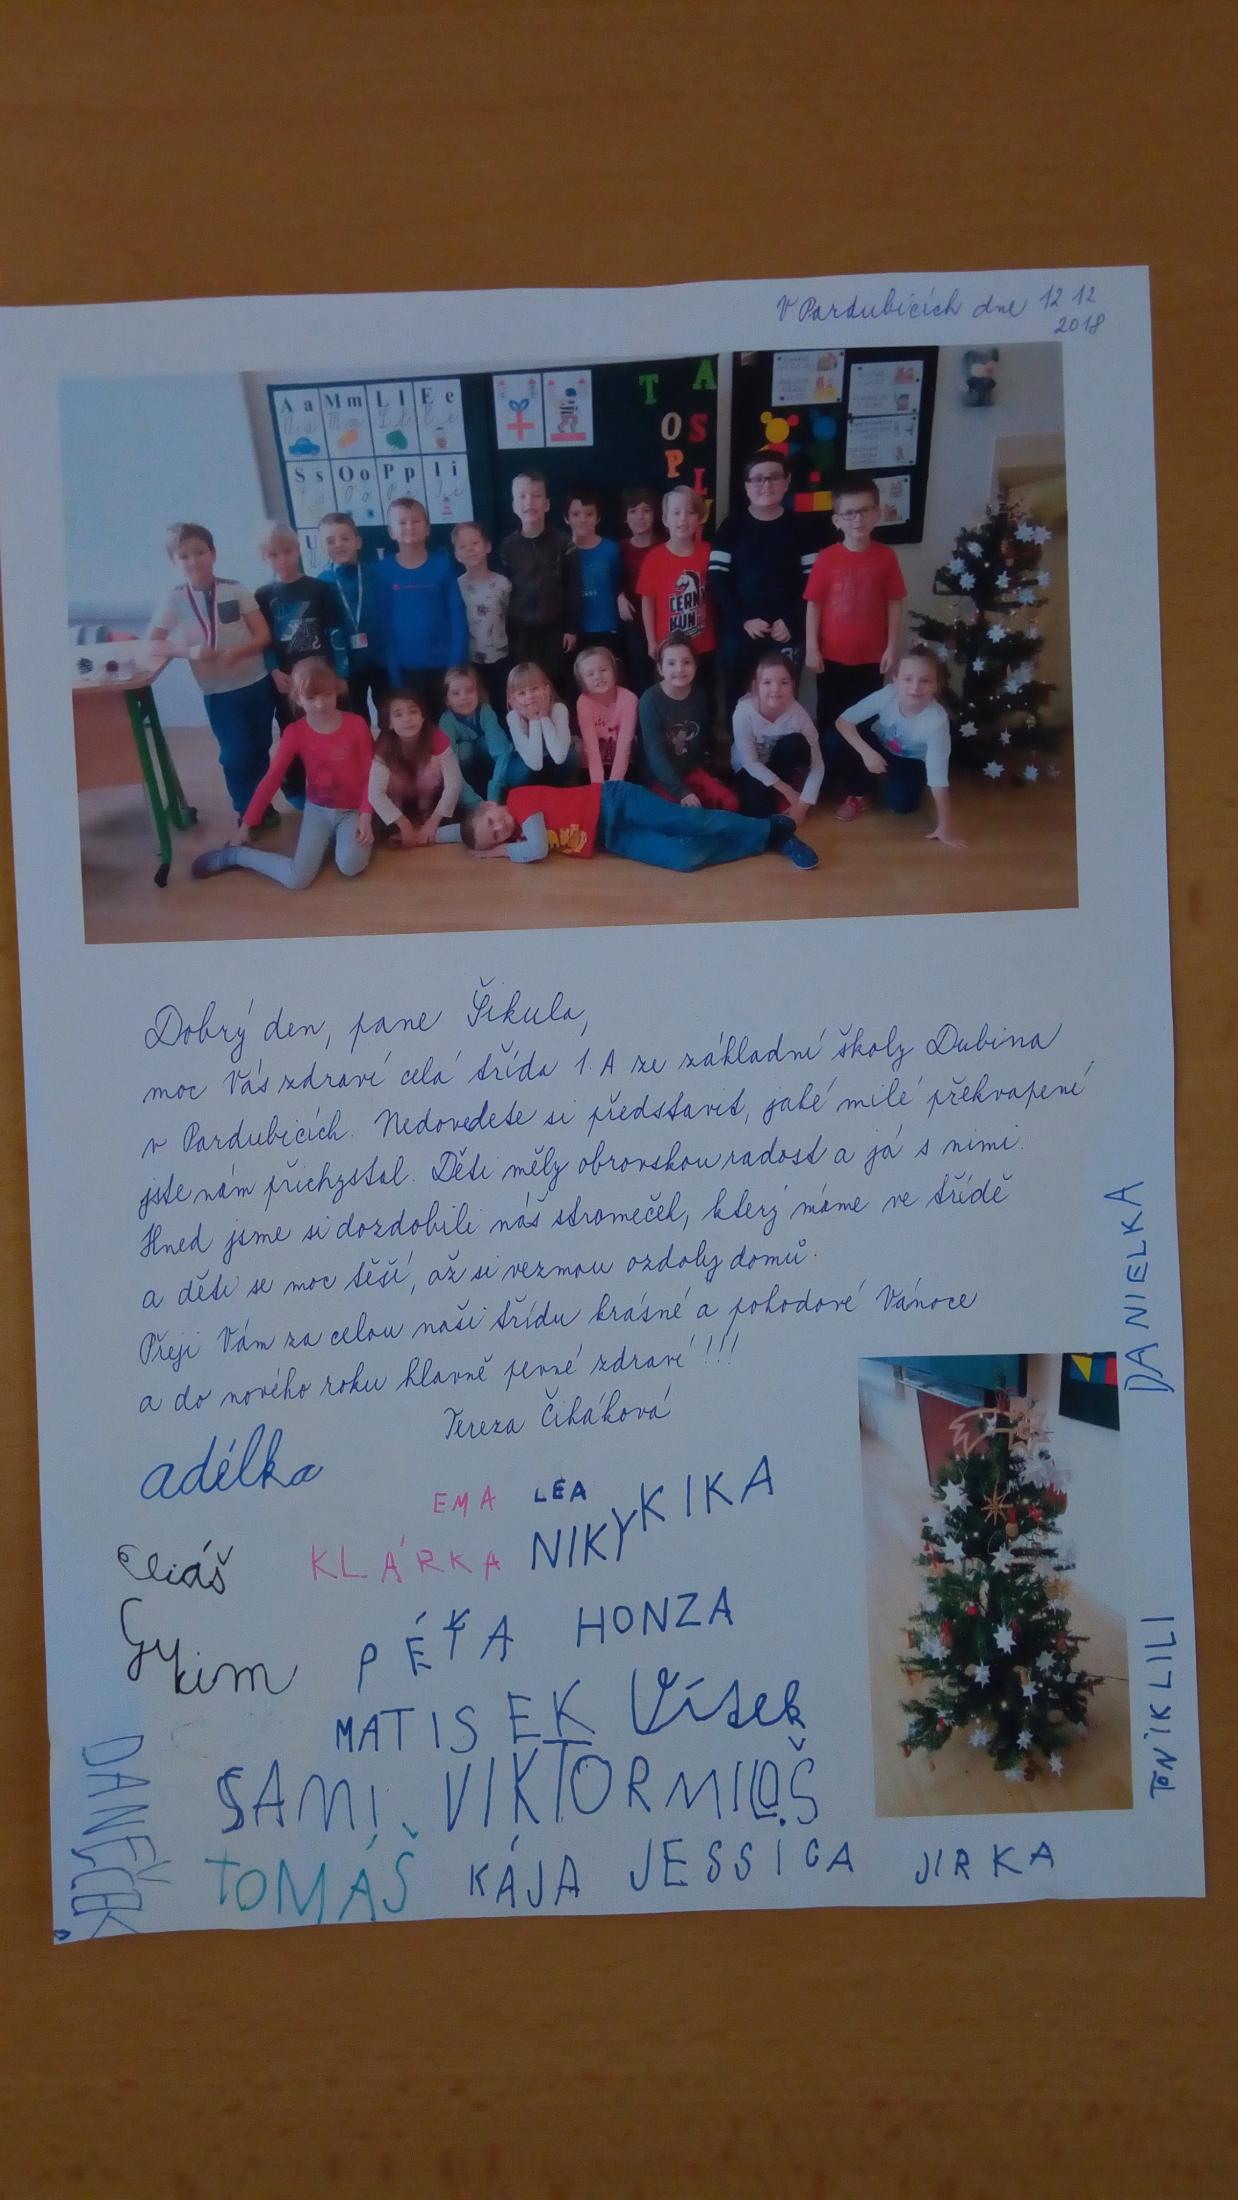 V Pardubicích dne 12 12
2018
T
O
P
A
S
L
A a M m L l E e
S s O o P p I i
U
ČERNÝ
KŮŇ
Dobrý den, pane Šikula,
moc Vás zdraví celá třída 1. A ze základní školy Dubina
v Pardubicích. Nedovedete si představit, jaké milé překvapení
jste nám přichystal. Děti měly obrovskou radost a já s nimi.
Hned jsme si dozdobili náš stromeček, který máme ve třídě
a děti se moc těší, až si vezmou ozdoby domů.
Přeji Vám za celou naši třídu krásné a pohodové Vánoce
a do nového roku hlavně pevné zdraví!!!
Tereza Čiháková
adélka
EMA LEA KIKA
Eliáš KLÁRKA NIKY
PÉŤA HONZA
kim
MATISEK Vítek
SAMI VIKTOR MILOŠ
TOMÁŠ KÁJA JESSICA JIRKA
DANEČEK
DANIELKA
TONIK LILI